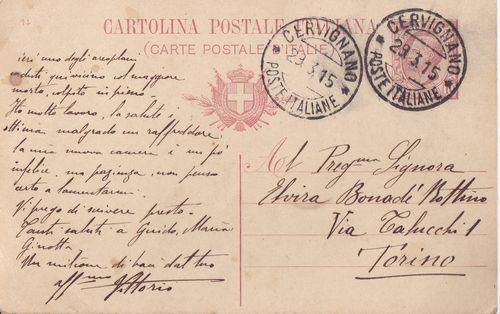 CARTOLINA POSTALE ITALIANA
(CARTE POSTALE D'ITALIE)
CERVIGNANO
29.3.15
* POSTE ITALIANE *
CERVIGNANO
29.3.15
* POSTE ITALIANE *
ieri uno degli aeroplani
caduti qui vicino col maggiore
morto, colpito in pieno.
Ho molto lavoro, la salute è
ottima malgrado un raffreddore,
la mia nuova camera è un po'
infelice, ma pazienza, non penso
certo a lamentarmi.
Vi prego di scrivere presto.
Tanti saluti a Guido, Maria
Ginotta.
Un milione di baci dal tuo
aff.mo Vittorio
Al Preg.ma Signora
Elvira Bonadè Bottino
Via Talucchi 1
Torino